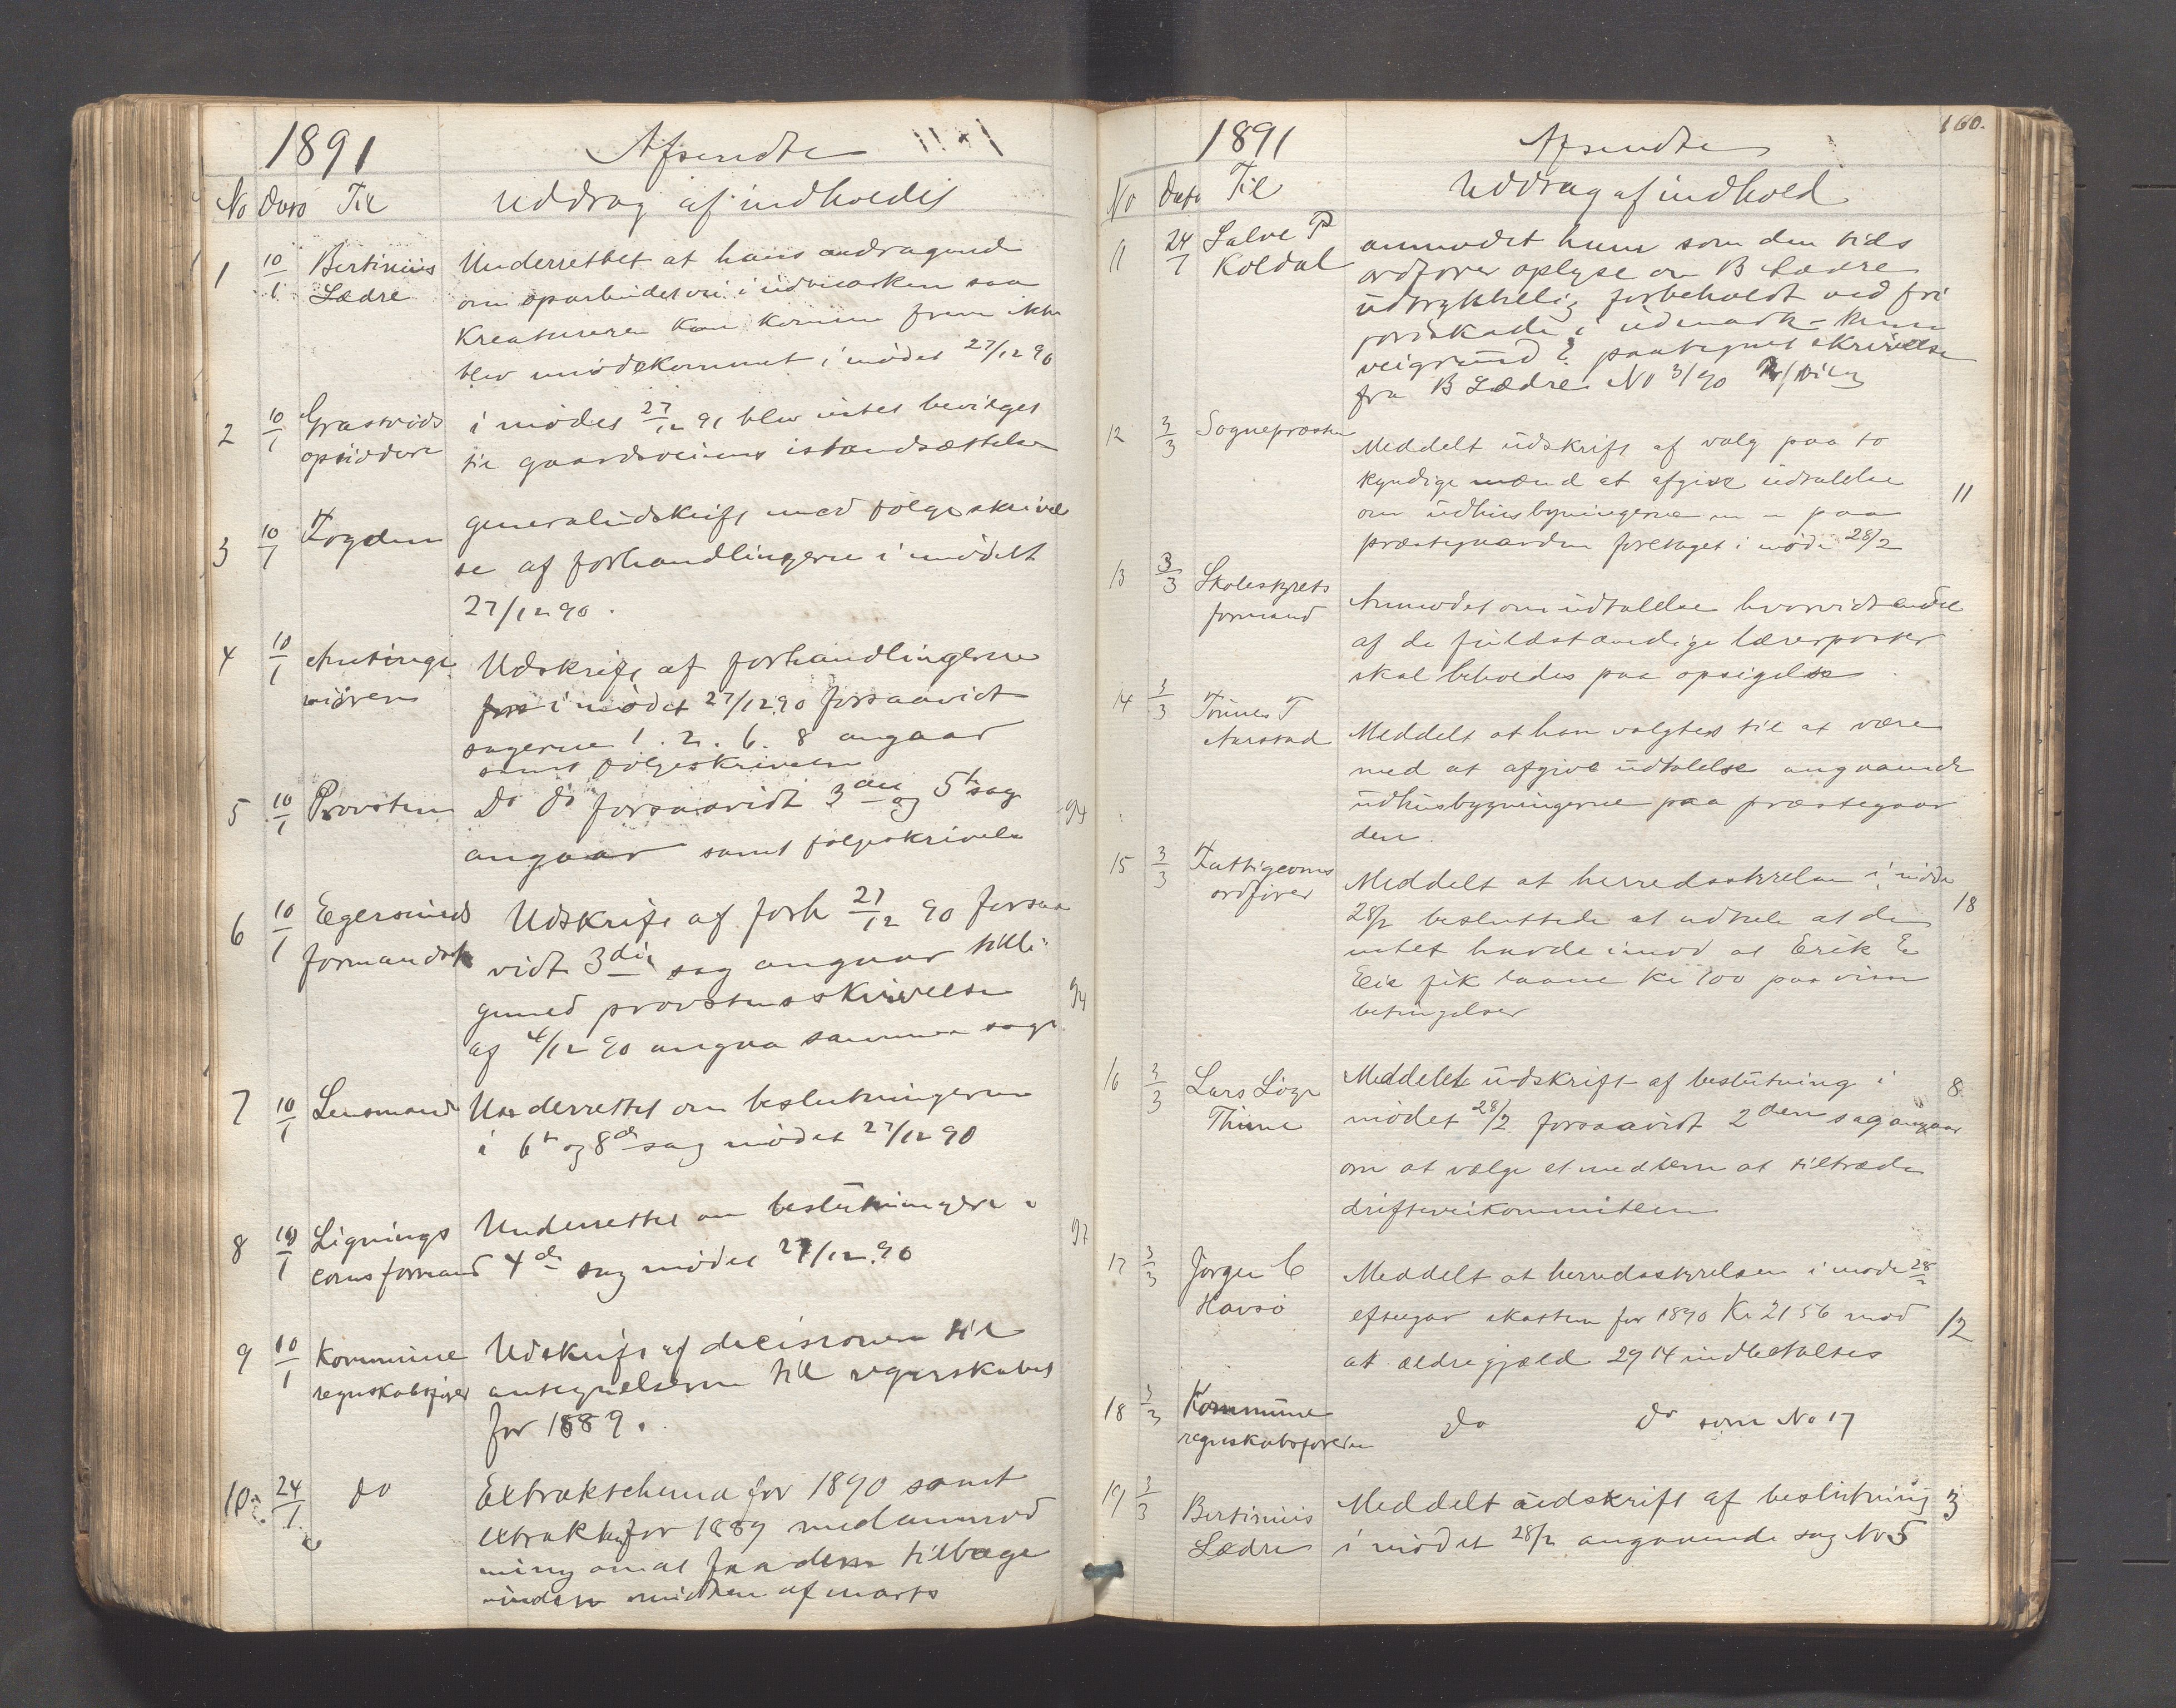 1891 Afsendte
No Dato Til Uddrag af indholdet
1 10/1 Bertinius Underrettet at hans andragende
Lædre om oparbeidet vei i udmarken saa
Kreaturerer kan komme frem ikke
blev imødekommet i mødet 27/12 90
2 10/1 Grastveids i mødet 27/12 91 blev intet bevilget
opsiddere til gaardsveiens istandsættelse
3 10/1 Fogden generaludskrift med følgeskrivel
se af forhandlingerne i mødet
27/12 90.
4 10/1 Amtinge Udskrift af forhandlingerne
niøren i mødet 27/12 90 forsaavidt
sagerne 1. 2. 6. 8 angaar
samt følgeskrivelse
5 10/1 Provsten Do do forsaavidt 3die og 5te sag 94
angaar samt følgeskrivelse
6 10/1 Egersunds Udskrift af forh 27/12 90 forsaa
formandsk vidt 3die sag angaar tilli
gemed provstens skrivelse 94
af 4/12 90 angaa samme sag
7 10/1 Lensmand Underrettet om beslutningerne
i 6te og 8de sag mødet 27/12 90
8 10/1 Lignings Underrettet om beslutningen i 97
coms formand 4de sag mødet 27/12.90
9 10/1 Kommune Udskrift af decisionen til
regnskabsfører antegnelserne till regnskabet
for 1889.
10 24/1 do Extraktschema for 1890 samt
extrakten for 1889 med anmod
ning om at faa dem tilbage
inden midten af marts
160.
1891 Afsendte
No Dato Til Uddrag af indhold
11 24/1 Salve P anmodet ham som den tids
Koldal ordfører oplyse om B Lædre
udtrykkelig forbeholdt ved fri
i udmark
veigrund? paategnet skrivelse
fra B Lædre No 3/90
12 3/3 Sognepræsten Meddelt udskrift af valg paa to
kyndige mænd at afgive udtalelse 11
om udhusbyningerne paa
præstegaarden foretaget i møde 28/2
13 3/3 Skolestyrets Anmodet om udtalelse hvorvidt endel
formand af de fuldstændige lærerposter
skal beholdes paa opsigelse
14 3/3 Tønnes T Meddelt at han valgtes til at være
Aarstad med at afgive udtalelse angaaende
udhusbygningerne paa præstegaar
den.
15 3/3 Fattigcoms Meddelt at herredsstyrelsen i møde
ordfører 28/2 besluttede at udtale at de 18
intet havde imod at Erik E
Eie fik laane Kr 100 paa visse
betingelser
16 3/3 Lars Løge Meddelelt udskrift af beslutning i 8
Thime mødet 28/2 forsaavidt 2den sag angaar
om at vælge et medlem at tiltræde
driftsveikommiteen
17 3/3 Jørgen C Meddelt at herredsstyrelsen i møde 28/2
Havsø eftergav skatten for 1890 Kr 21 56 mod 12
at ældre gjæld 29 14 indbetaltes
18 3/3 Kommune do do som No 17
regnskabsføreren
19 3/3 Bertinius Meddelt udskrift af beslutning 3
Lædre i mødet 28/2 angaaende sag No 5